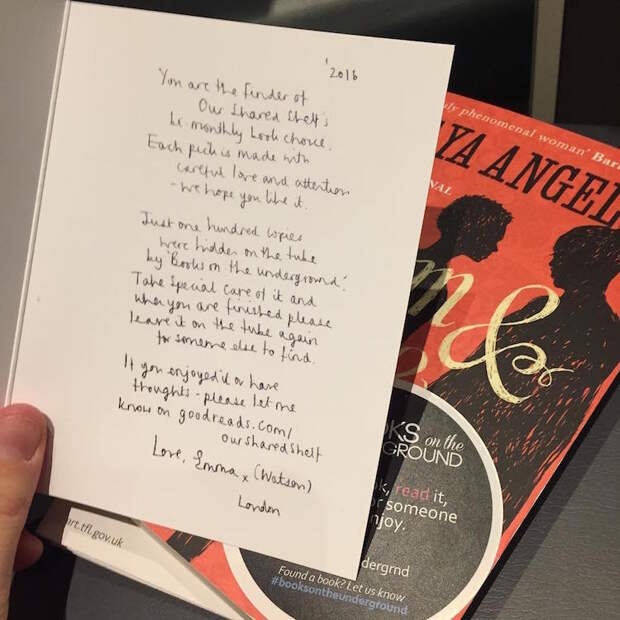 '2016
You are the finder of
Our Shared Shelf's
bi-monthly book choice.
Each pick is made with
careful love and attention
- we hope you like it.
Just one hundred copies
were hidden on the tube
by 'Books on the underground'.
Take special care of it and
when you are finished please
leave it on the tube again
for someone else to find.
If you enjoyed it or have
thoughts - please let me
know on goodreads.com/
oursharedshelf
Love, Emma x (Watson)
London
phenomenal woman' Bar
YA ANGEL
NAL
m &
KS on the
GROUND
k, read it,
or someone
njoy.
dergrnd
Found a book? Let us know
#booksontheunderground
art.tfl.gov.uk